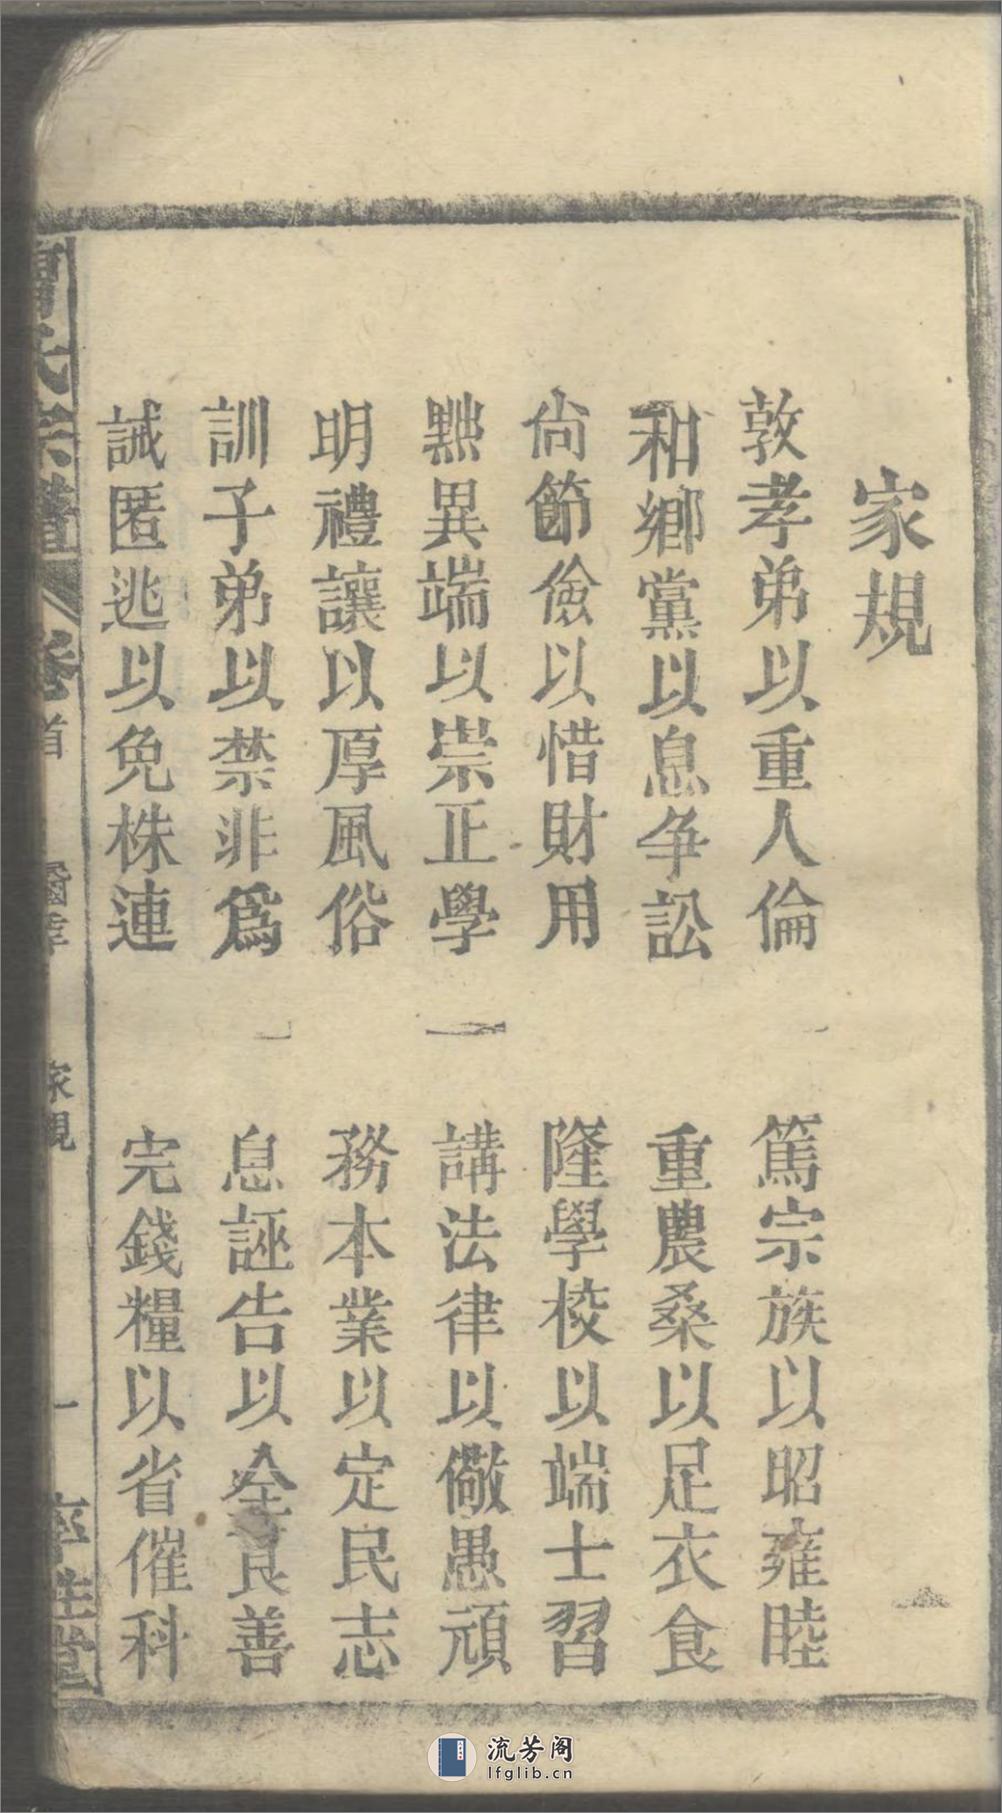 家規
敦孝弟以重人倫　篤宗族以昭雍睦
和鄉黨以息争訟　重農桑以足衣食
尙節儉以惜財用　隆學校以端士習
黜異端以崇正學　講法律以儆愚頑
明禮讓以厚風俗　務本業以定民志
訓子弟以禁非爲　息誣告以全良善
誡匿逃以免株連　完錢糧以省催科
氏宗譜　卷首　家規　一　堂
流芳阁
lfglib.cn